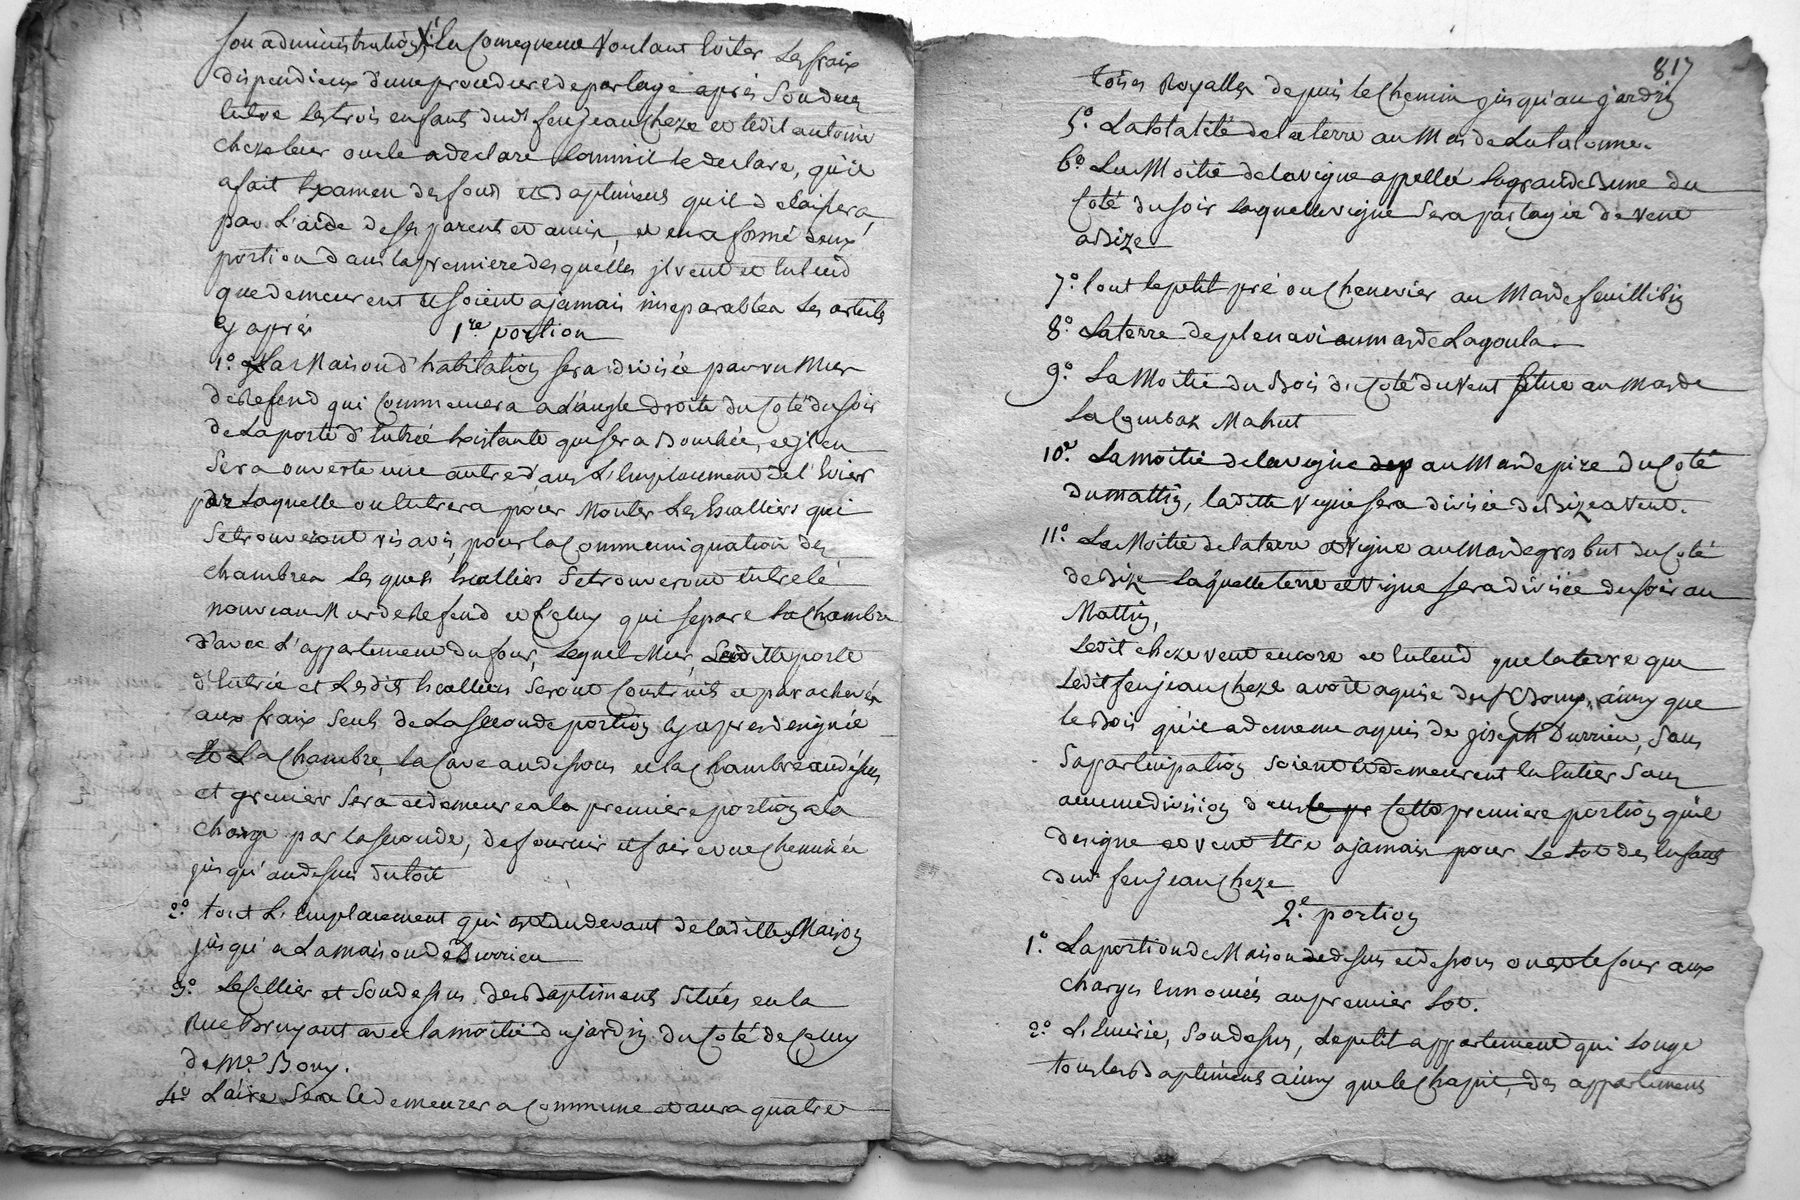 son administration, En Consequence Voulant Eviter Les frais
dispendieux d'une procedure de partage après Son deces
Entre Les trois enfants dudt feu jean Cheze et ledit antoine
cheze leur oncle a declare Comme il declare, qu'il
a fait Examen des fonds et baptiments qu'il delaissera
par L'aide de ses parents et amis, et en a formé deux
portion dans la premiere desquelles jl veut et Entend
que demeurent et soient ajamais inseparables Les articles
Cy après
1re portion
1.° La Maison d'habitation sera divisée par un Mur
de Refend qui Commencera a L'angle droite du Coté du soir
de La porte d'Entrée Existante qui sera Bouchée, et jl en
Sera ouverte une autre dans L'Emplacement de l'Evier
par Laquelle on Entrera pour Monter Les Escalliers qui
Se trouveront vis avis, pour la Communiquation des
chambres Les quels Escalliers Se trouveront Entre le
nouveau Mur de Refend et Celuy qui separe La Chambre
d'avec L'appartement du four, Lequel Mur, Laditte porte
d'Entrée et Lesdits Escalliers Seront Construits et parachevés
aux fraix Seuls de La Seconde portion Cy apres designée
La Chambre, la Cave au dessous et la Chambre au dessus
et grenier Sera et demeurera la premiere portion a la
charge par la seconde, de fournir et faire une Cheminée
jusqu'au dessus du toit
2.° tout L'Emplacement qui est au devant de laditte Maison
jusqu'a La maison de Durrieu
3.° Le Cellier et Son dessus des Baptiments Situés en la
Rue Bruyant avec la moitié du jardin du Coté de Celuy
de Me. Bouy.
4.° L'aire Sera Et demeurera Commune et aura quatre
817
toises Royalles depuis le Chemin jusqu'au jardin
5.° La totalité de la terre au Mas de La talonne.
6.° La Moitié de la vigne appellée La grande Bune du
Coté du soir Laquelle vigne Sera partagée de vent
a Bize
7.° tout le petit pré ou Chenevier au Mas de feuillibin
8.° La terre de plenavi au mas de Lagoula
9.° La Moitié du Bois du Coté du vent situé au Mas de
La Combas Mahut
10.° La moitié de la vigne au Mas de pize du Coté
du mattin, laditte vigne sera divisée de Bize a vent.
11.° La Moitié de la terre et Vigne au Mas de gros but du Coté
de Bize Laquelle terre et Vigne sera divisée du soir au
Mattin,
Ledit cheze veut encore et Entend que la terre que
Ledit feu jean Cheze avoit aquise du Sr Bouy, ainsy que
le Bois qu'il a de meme aquis de joseph Durrieu, Sans
Sa participation soient Et demeurent En Entier Sans
aucune division dans Cette premiere portion qu'il
designe et veut Etre ajamais pour Le Lot des Enfants
dudt feu jean Cheze
2.e portion
1.° La portion de Maison dessus et dessous ou est le four aux
charges Ennoncés au premier Lot.
2.° L'Ecurie, Son dessus, Le petit appartement qui Longe
tous les Baptiments ainsy que le Chapit, des appartements